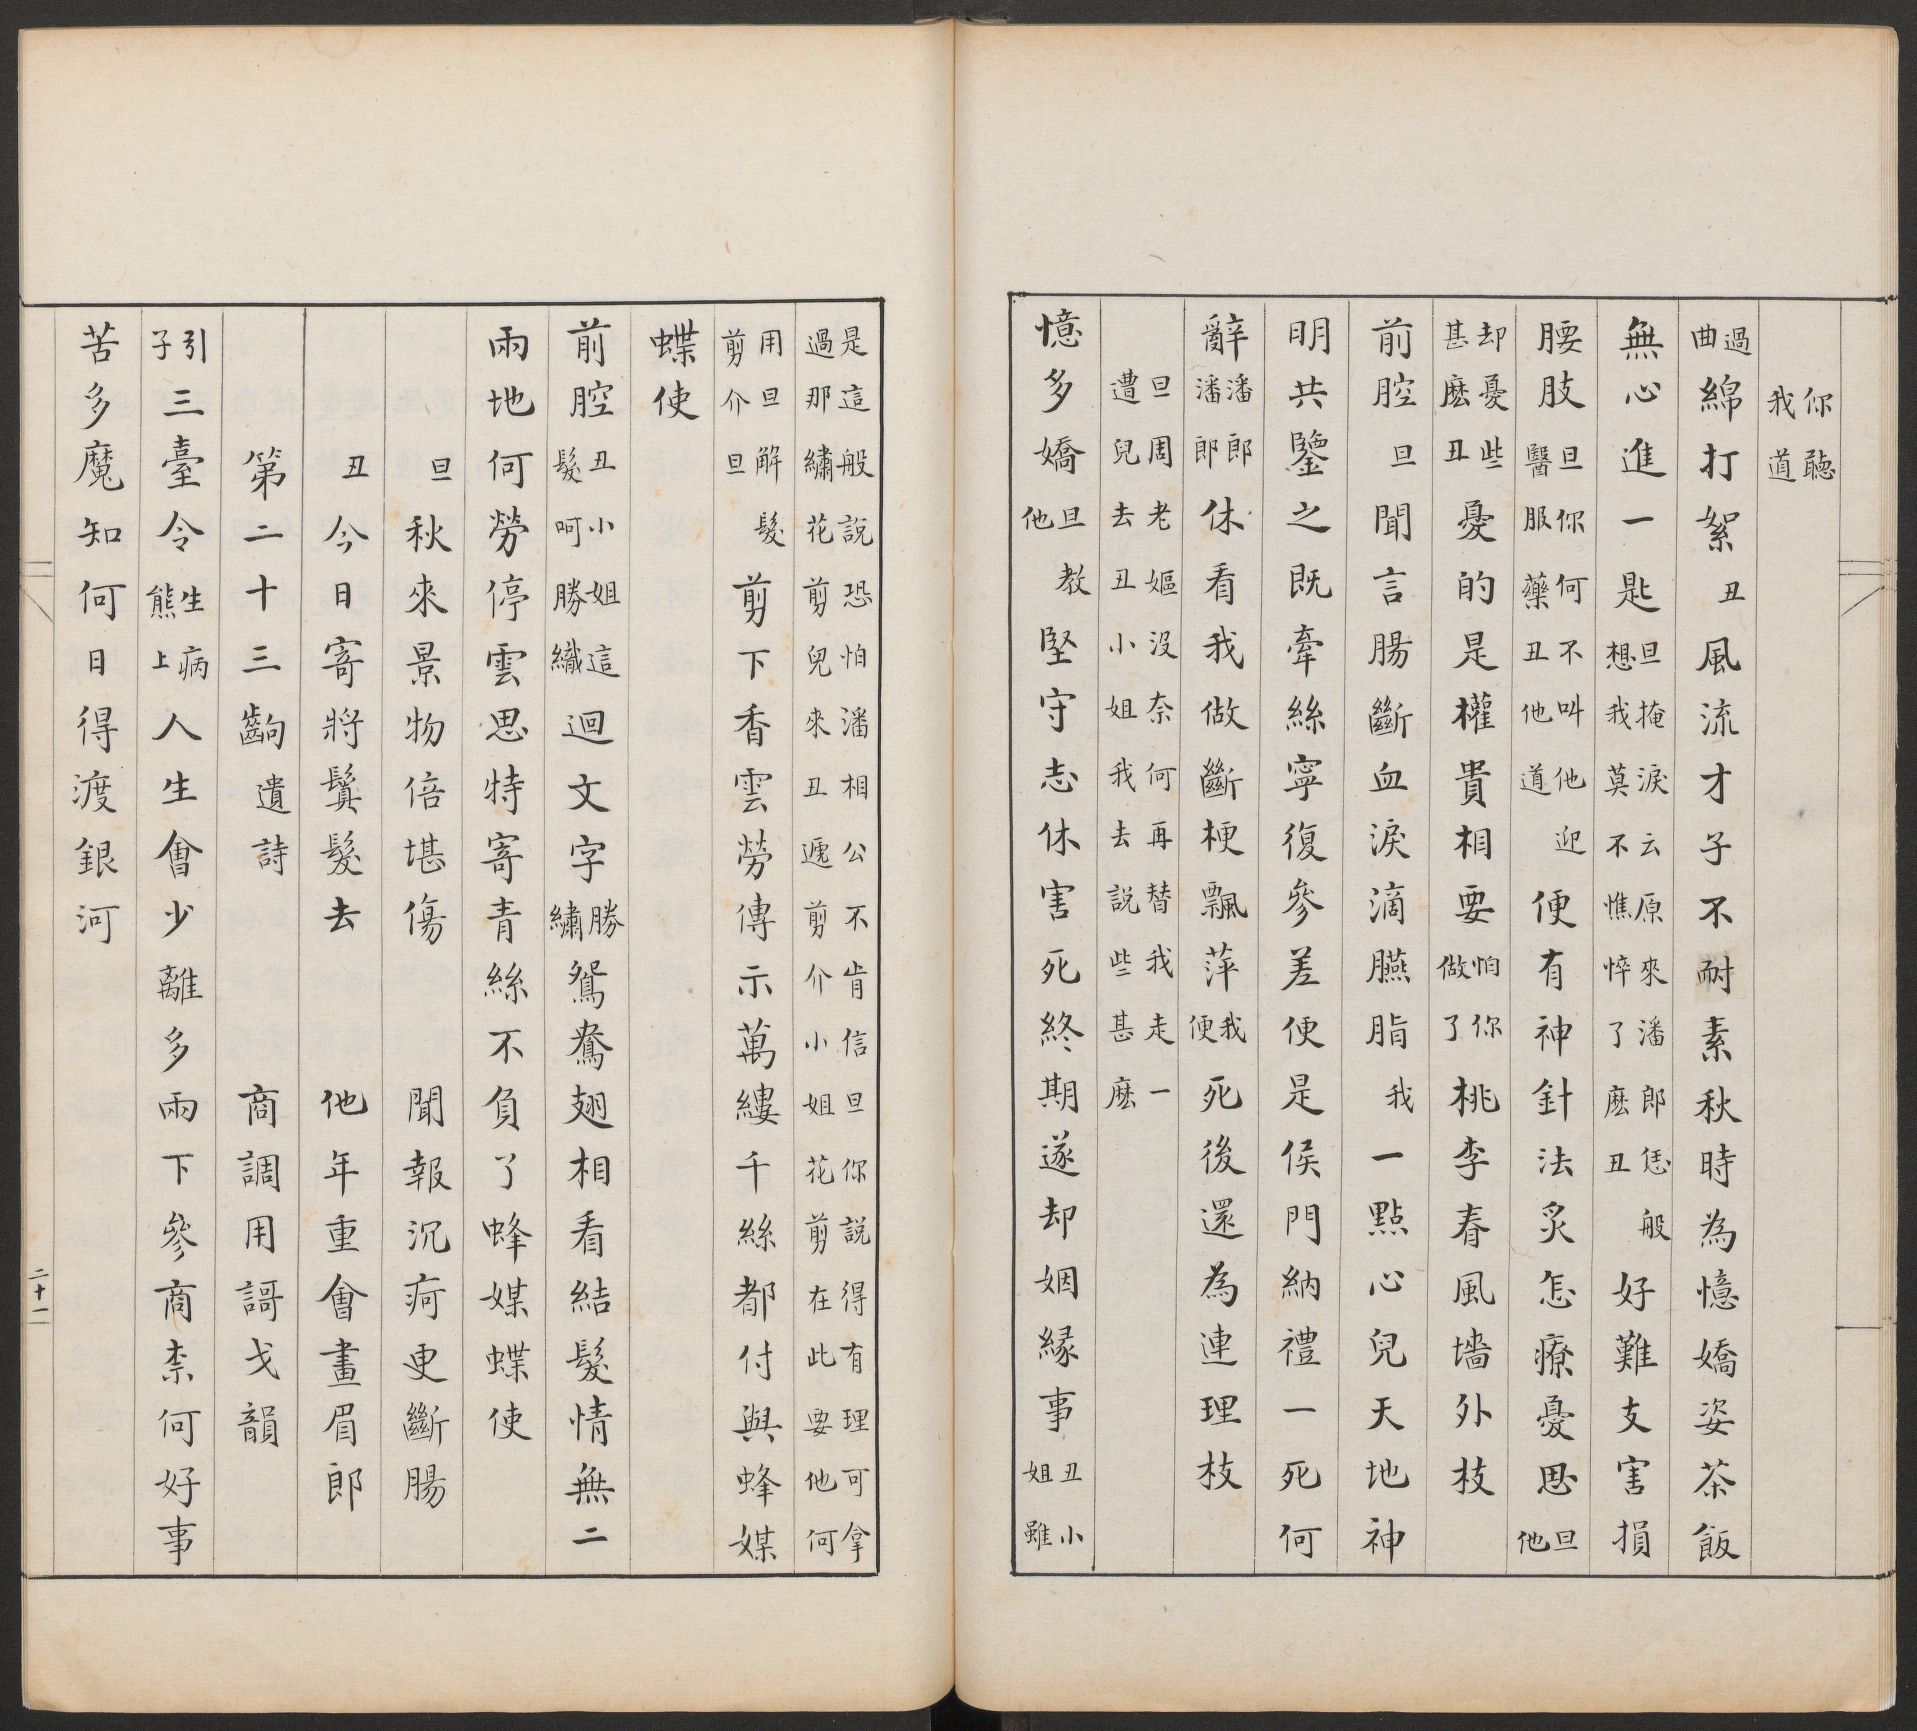 你聽我道
過曲綿打絮丑風流才子不耐素秋時為憶嬌姿茶飯
無心進一匙旦掩淚云原來潘郎恁般想我莫不憔悴了麽丑好難支害損
腰肢旦你何不叫他迎醫服藥丑他道便有神針法炙怎療憂思旦他
却憂些甚麽丑憂的是權貴相要怕你做了桃李春風墻外枝
前腔旦聞言腸斷血淚滴臙脂我一點心兒天地神
明共鑒之既牽絲寧復參差便是侯門納禮一死何
辭潘郎潘郎休看我做斷梗飄萍我便死後還為連理枝
旦周老嫗沒奈何再替我走一遭兒去丑小姐我去說些甚麽
憶多嬌旦他教堅守志休害死終期遂却姻緣事丑小姐雖
是這般說恐怕潘相公不肯信旦你說得有理可拿過那繡花剪兒來丑遞剪介小姐花剪在此要他何
用旦解髮剪介旦剪下香雲勞傳示萬縷千絲都付與蜂媒
蝶使
前腔丑小姐這髮呵勝織迴文字勝繡鴛鴦翅相看結髮情無二
兩地何勞停雲思特寄青絲不負了蜂媒蝶使
旦秋來景物倍堪傷　聞報沉疴更斷腸
丑今日寄將鬒髮去　他年重會畫眉郎
第二十三齣　遺詩　商調用謌戈韻
引子三臺令生病熊上人生會少離多兩下參商柰何好事
苦多魔知何日得渡銀河
二十一